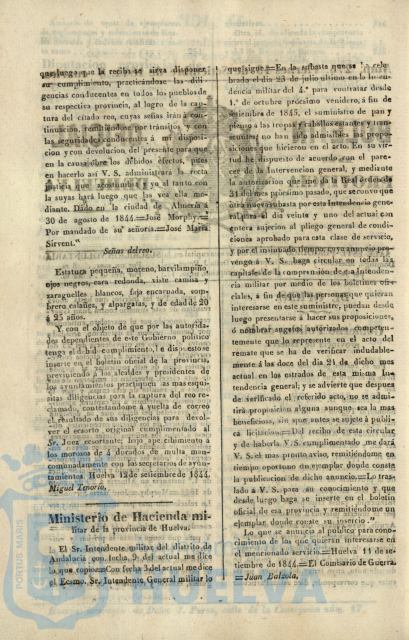 que luego que la reciba se sirva disponer
su cumplimiento, practicándose las dili-
gencias conducentes en todos los pueblos de
su respectiva provincia, al logro de la cap-
tura del citado reo, cuyas señas irán á con-
tinuacion, remitiéndose por tránsitos y con
las seguridades conducentes á mi disposi-
cion y con devolucion del presente para que
en la causa obre los debidos efectos, pues
en hacerlo asi V. S. administrará la recta
justicia que acostumbra y yo al tanto con
la suyas hará luego que las vea ella me-
diante. Dado en la ciudad de Almería á
30 de agosto de 1844.=José Morphy.=
Por mandado de su señoría.=José María
Sirvent."
Señas del reo.
Estatura pequeña, moreno, barvilampiño,
ojos negros, cara redonda, viste camisa y
zaragüelles blancos, faja encarnada, som-
brero calañes, y alpargatas, y de edad de 20
á 25 años.
Y con el objeto de que por las autorida-
des dependientes de este Gobierno político
tenga el debido cumplimiento, he dispuesto se
inserte en el boletin oficial de la provincia,
previniendo á los alcaldes y presidentes de
los ayuntamientos practiquen las mas esqui-
sitas diligencias para la captura del reo re-
clamado, contestándome á vuelta de correo
el resultado de sus diligencias para devol-
ver el ecsorto original cumplimentado al
Sr. Juez ecsortante; bajo apercibimiento á
los morosos de 4 ducados de multa man-
comunadamente con los secretarios de ayun-
tamientos. Huelva 12 de setiembre de 1844.
Miguel Tenorio.
Ministerio de Hacienda mi-
litar de la provincia de Huelva.
El Sr. Intendente militar del distrito de
Andalucía con fecha 9 del actual me dice
lo que copio.=Con fecha 3 del actual me dice
el Ecsmo. Sr. Intendente General militar lo
que sigue.=En la subasta que se ha cele-
brado el 23 de julio último en la Inten-
dencia militar del 4.º para contratar desde
1.º de octubre prócsimo venidero, á fin de
setiembre de 1845, el suministro de pan y
pienso á las tropas y caballos estantes y tran-
seuntes no han sido admisibles las propo-
siciones que hicieron en el acto. En su vir-
tud he dispuesto de acuerdo con el pare-
cer de la Intervencion general, y mediante
la autorizacion que me da la Real órden de
31 del mes prócsimo pasado, que se convoque
otra nueva subasta por esta Intendencia gene-
ral para el dia veinte y uno del actual con
entera sujecion al pliego general de condi-
ciones aprobado para esta clase de servicio,
y por el mismo año tiempo, cuyo anuncio pre-
vengo á V. S. haga circular en todas las
capitales de la comprension de esa Intenden-
cia militar por medio de los boletines ofi-
ciales, á fin de que las personas que quieran
interesarse en este suministro, puedan desde
luego presentarse á hacer sus proposiciones,
ó nombrar sugetos autorizados competen-
temente que lo represente en el acto del
remate que se ha de verificar indudable-
mente á las doce del dia 21 de dicho mes
actual en los estrados de esta misma In-
tendencia general; y se advierte que despues
de verificado el referido acto, no se admi-
tirá proposicion alguna aunque sea la mas
beneficiosa, sin que antes se sujete á públi-
ca licitacion.=Del recibo de esta circular
y de haberla V. S. cumplimentado me dará
V. S. el mas pronto aviso, remitiéndome en
tiempo oportuno un ejemplar donde conste
la publicacion de dicho anuncio.=Lo tras-
lado á V. S. para su conocimiento y que
desde luego haga se inserte en el boletin
oficial de esa provincia y remitiéndome un
ejemplar donde conste su inserto."
Lo que se anuncia al público para cono-
cimiento de los que quieran interesarse en
el mencionado servicio.=Huelva 11 de se-
tiembre de 1844.=El Comisario de Guerra.
=Juan Balzola.
PORTUS MARIS
HUELVA